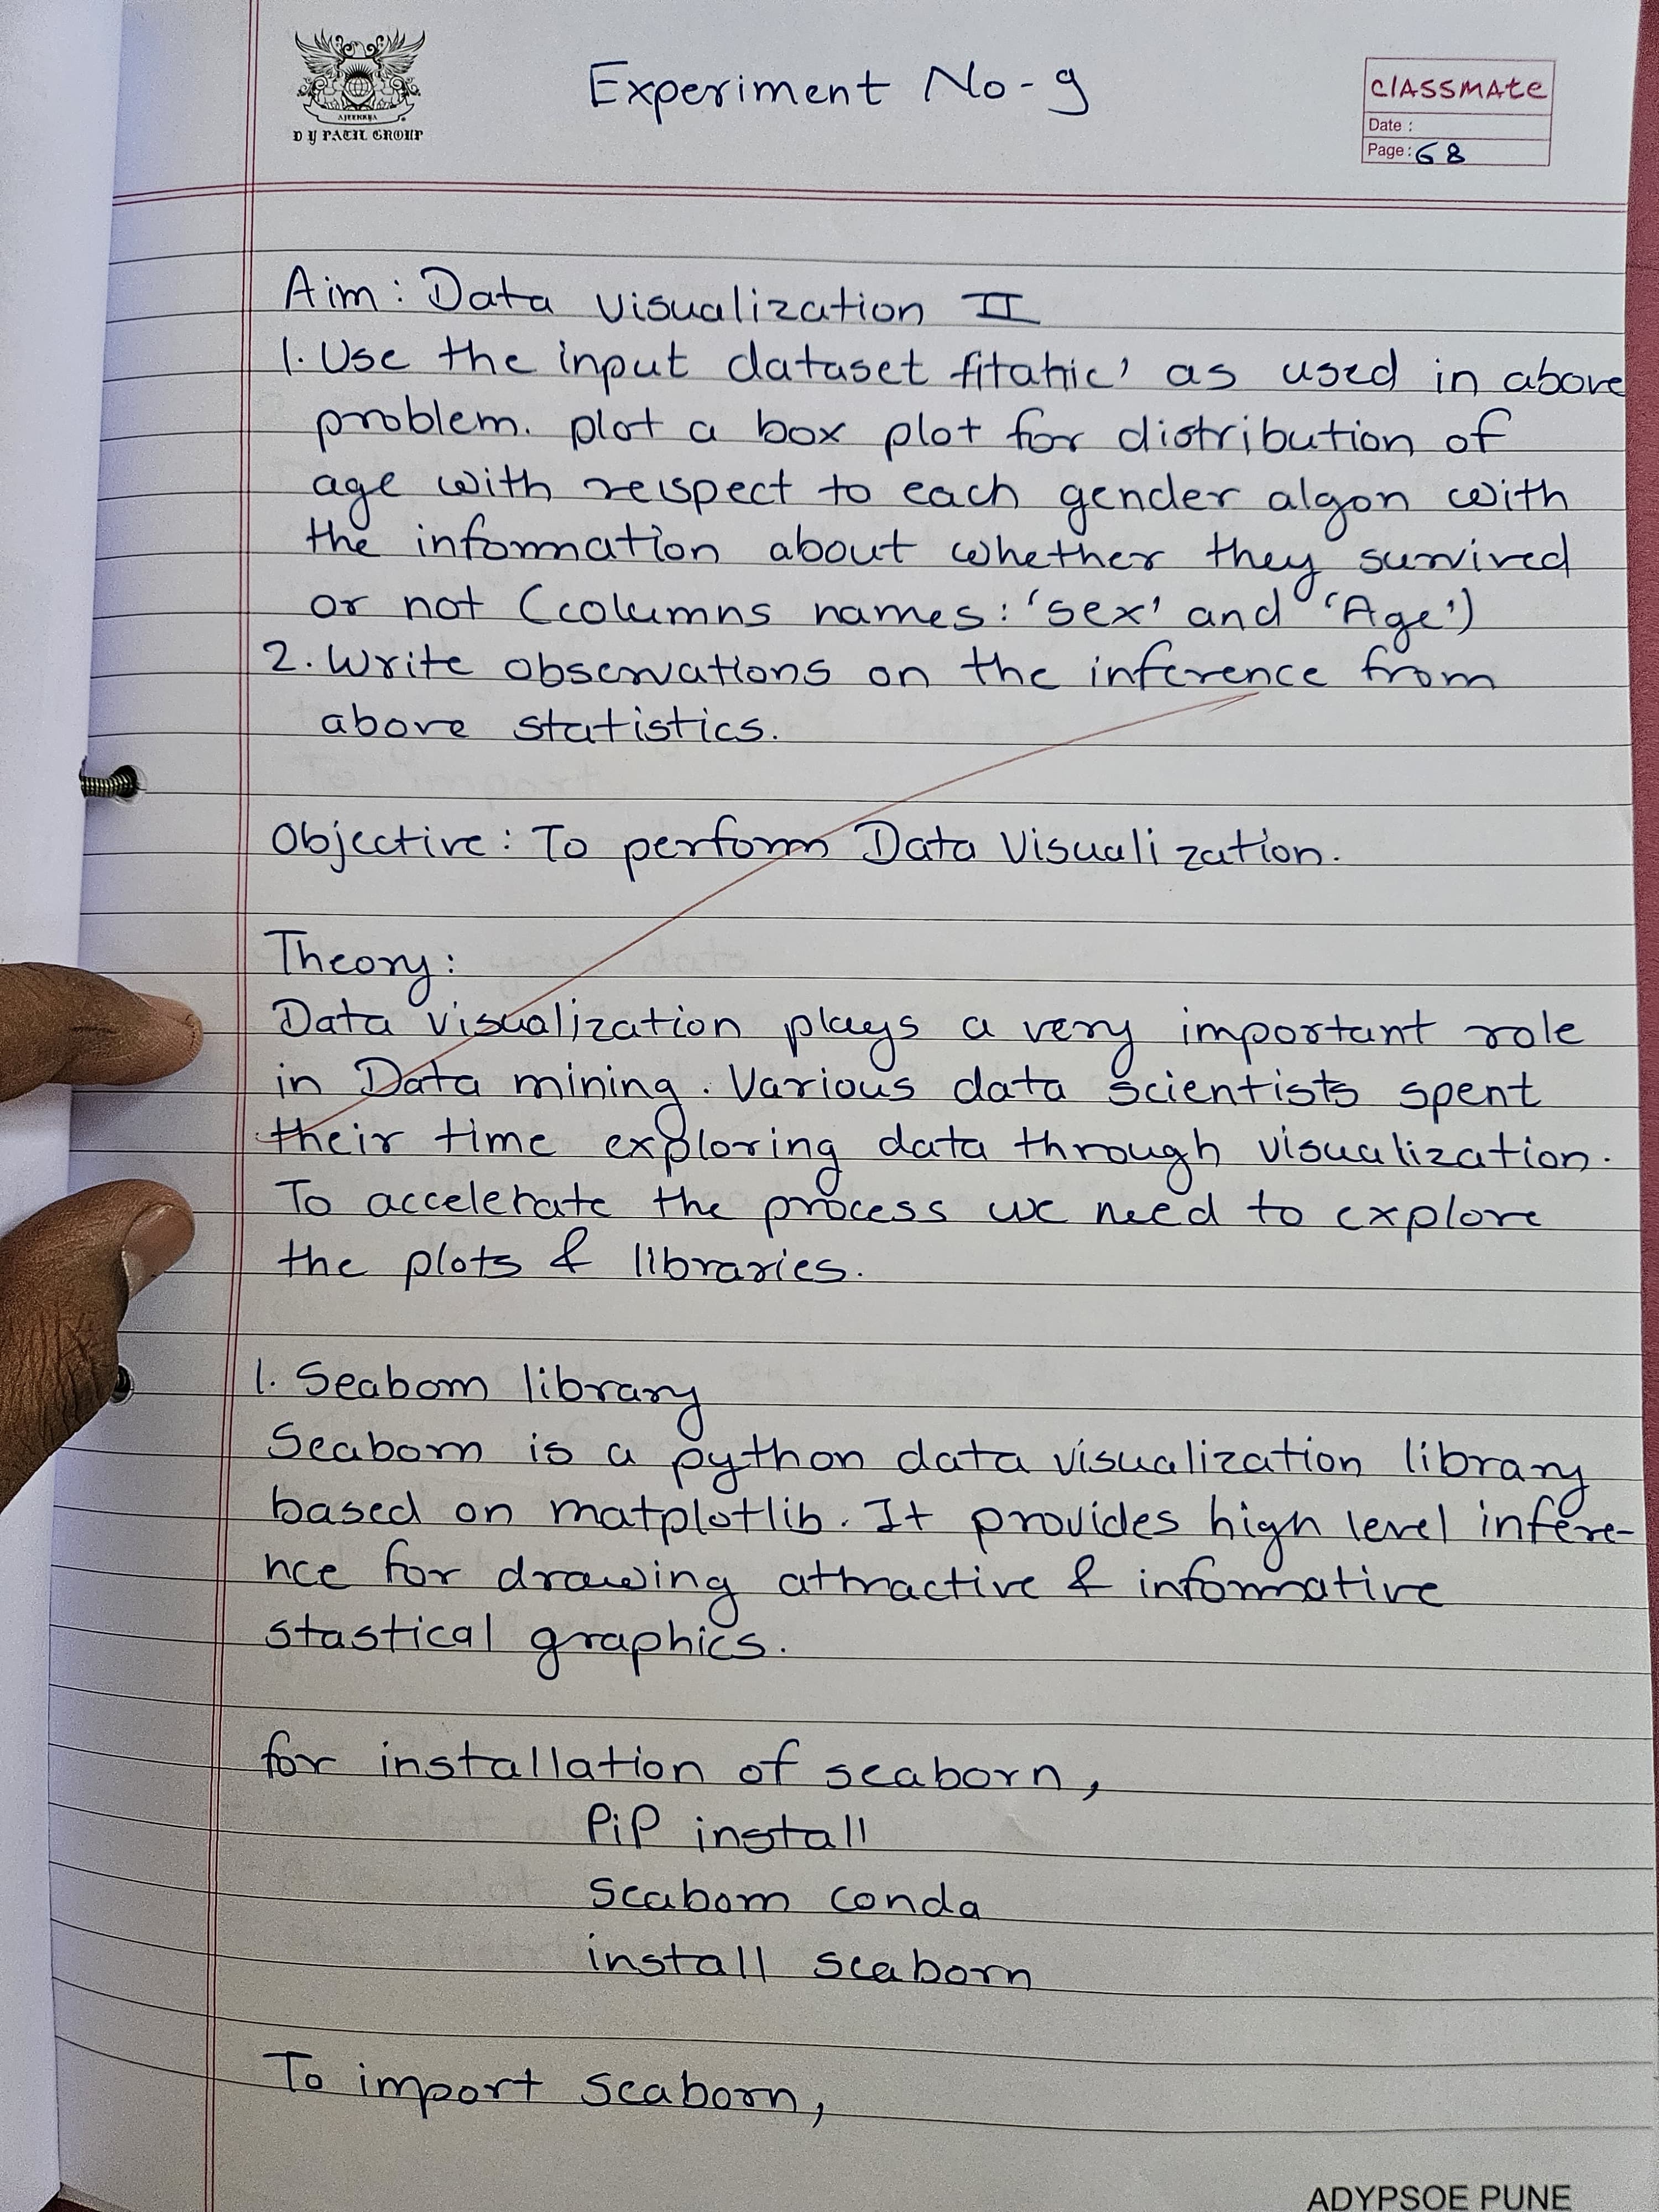 AJEENKYA
D Y PATIL GROUP
Experiment No-9
CLASSMATE
Date :
Page: 68
Aim: Data visualization II
1. Use the input dataset fitahic' as used in above
problem. plot a box plot for distribution of
age with reispect to each gender algon with
the information about whether they survived
or not (columns names: 'sex' and 'Age')
2. Write observations on the inference from
above statistics.
Objective: To perform Data Visualization.
Theory:
Data visualization plays a very important role
in Data mining. Various data scientists spent
their time exploring data through visualization.
To accelerate the process we need to explore
the plots & libraries.
1. Seaborn library
Seaborn is a python data visualization library
based on matplotlib. It provides high level infere-
nce for drawing attractive & informative
stastical graphics.
for installation of seaborn,
PiP install
seaborn conda
install seaborn
To import seaborn,
ADYPSOE PUNE